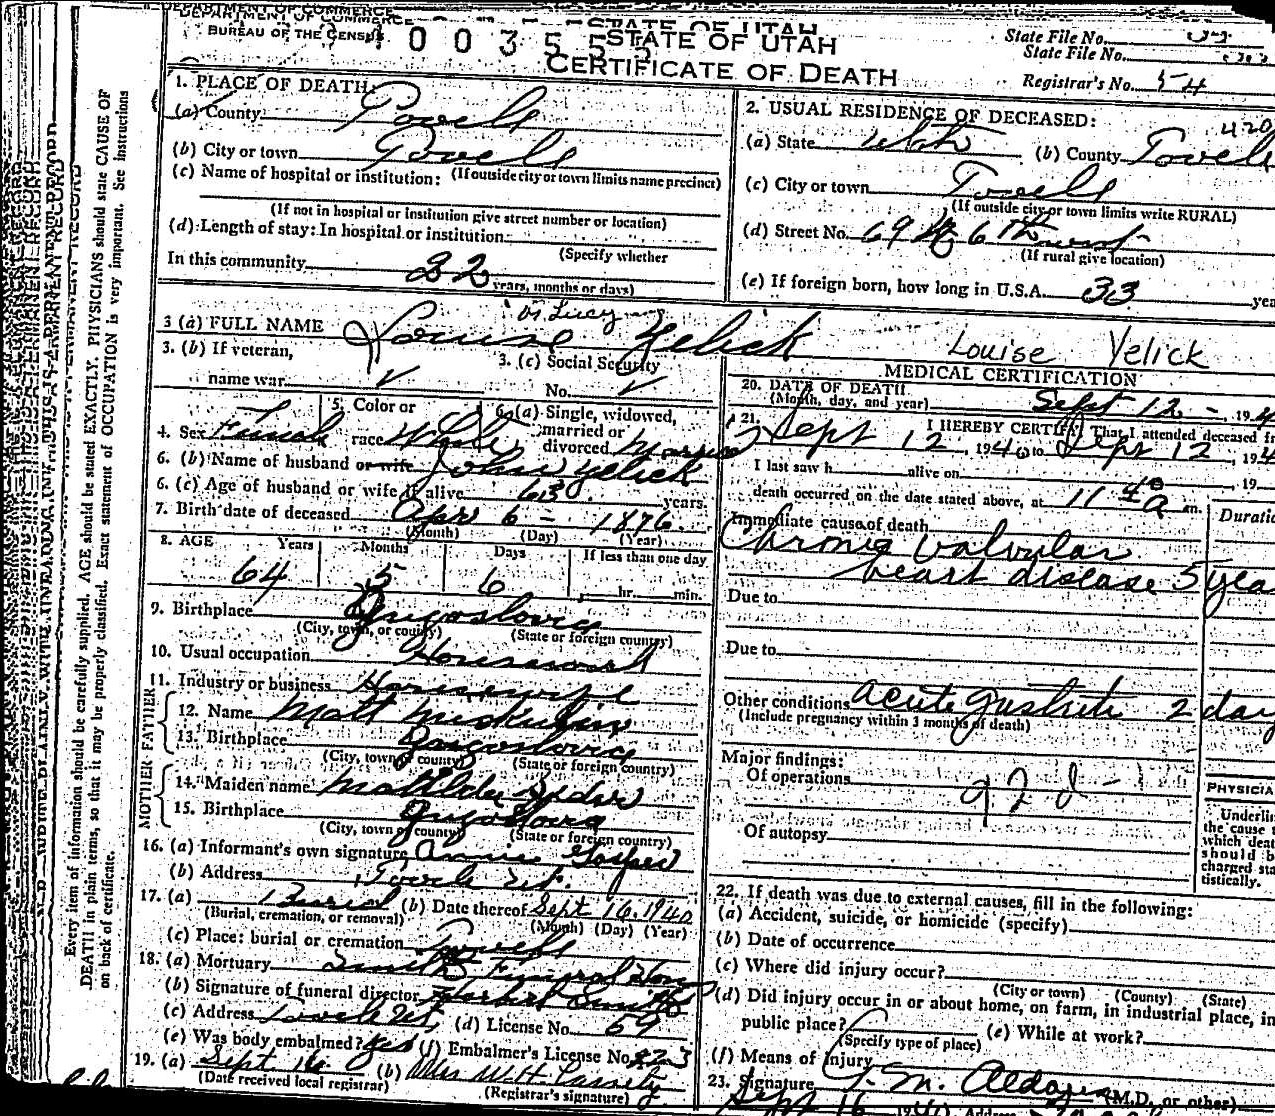 DEPARTMENT OF COMMERCE
BUREAU OF THE CENSUS
STATE OF UTAH
CERTIFICATE OF DEATH
State File No.
State File No.
Registrar's No. 54
1. PLACE OF DEATH:
(a) County Tooele
(b) City or town Tooele
(c) Name of hospital or institution: (If outside city or town limits name precinct)
(If not in hospital or institution give street number or location)
(d) Length of stay: In hospital or institution
(Specify whether
In this community 32
years, months or days)
2. USUAL RESIDENCE OF DECEASED:
(a) State Utah (b) County Tooele
(c) City or town Tooele
(If outside city or town limits write RURAL)
(d) Street No. 69 6th west
(If rural give location)
(e) If foreign born, how long in U.S.A. 33 yea
or Lucy
3 (a) FULL NAME Louise Yelick Louise Yelick
3. (b) If veteran,
name war
3. (c) Social Security
No.
4. Sex Female 5. Color or race White 6. (a) Single, widowed, married or divorced Married
6. (b) Name of husband or wife John Yelick
6. (c) Age of husband or wife if alive 63 years.
7. Birth date of deceased Apr 6 - 1876
(Month) (Day) (Year)
8. AGE Years Months Days If less than one day
64 5 6 hr. min.
9. Birthplace Jugoslovia
(City, town, or county) (State or foreign country)
10. Usual occupation Housework
11. Industry or business Housewife
FATHER
12. Name Matt Miskulin
13. Birthplace Jugoslovia
(City, town or county) (State or foreign country)
MOTHER
14. Maiden name
15. Birthplace Jugoslovia
(City, town or county) (State or foreign country)
16. (a) Informant's own signature Annie
(b) Address Tooele Ut.
17. (a) Burial (b) Date thereof Sept 16. 1940
(Burial, cremation, or removal) (Month) (Day) (Year)
(c) Place: burial or cremation Tooele
18. (a) Mortuary Smith Funeral Home
(b) Signature of funeral director
(c) Address Tooele Ut. (d) License No. 69
(e) Was body embalmed? Yes (f) Embalmer's License No. 223
19. (a) Sept 16 (b) Mrs W.H. Cassity
(Date received local registrar) (Registrar's signature)
MEDICAL CERTIFICATION
20. DATE OF DEATH
(Month, day, and year) Sept 12 - , 194
21. I HEREBY CERTIFY That I attended deceased fr
Sept 12, 1940 to Sept 12, 194
I last saw h alive on , 19
death occurred on the date stated above, at 11 40 a m.
Duratio
Immediate cause of death
Chronic valvular
heart disease 5 yea
Due to
Due to
Other conditions acute gastritis 2 day
(Include pregnancy within 3 months of death)
Major findings:
Of operations
Of autopsy
PHYSICIA
Underlin
the cause
which deat
should b
charged sta
tistically.
22. If death was due to external causes, fill in the following:
(a) Accident, suicide, or homicide (specify)
(b) Date of occurrence
(c) Where did injury occur?
(City or town) (County) (State)
(d) Did injury occur in or about home, on farm, in industrial place, in
public place? (e) While at work?
(Specify type of place)
(f) Means of Injury
23. Signature (M.D. or other)
Sept 16 Address
Every item of information should be carefully supplied. AGE should be stated EXACTLY. PHYSICIANS should state CAUSE OF
DEATH in plain terms, so that it may be properly classified. Exact statement of OCCUPATION is very important. See instructions
on back of certificate.